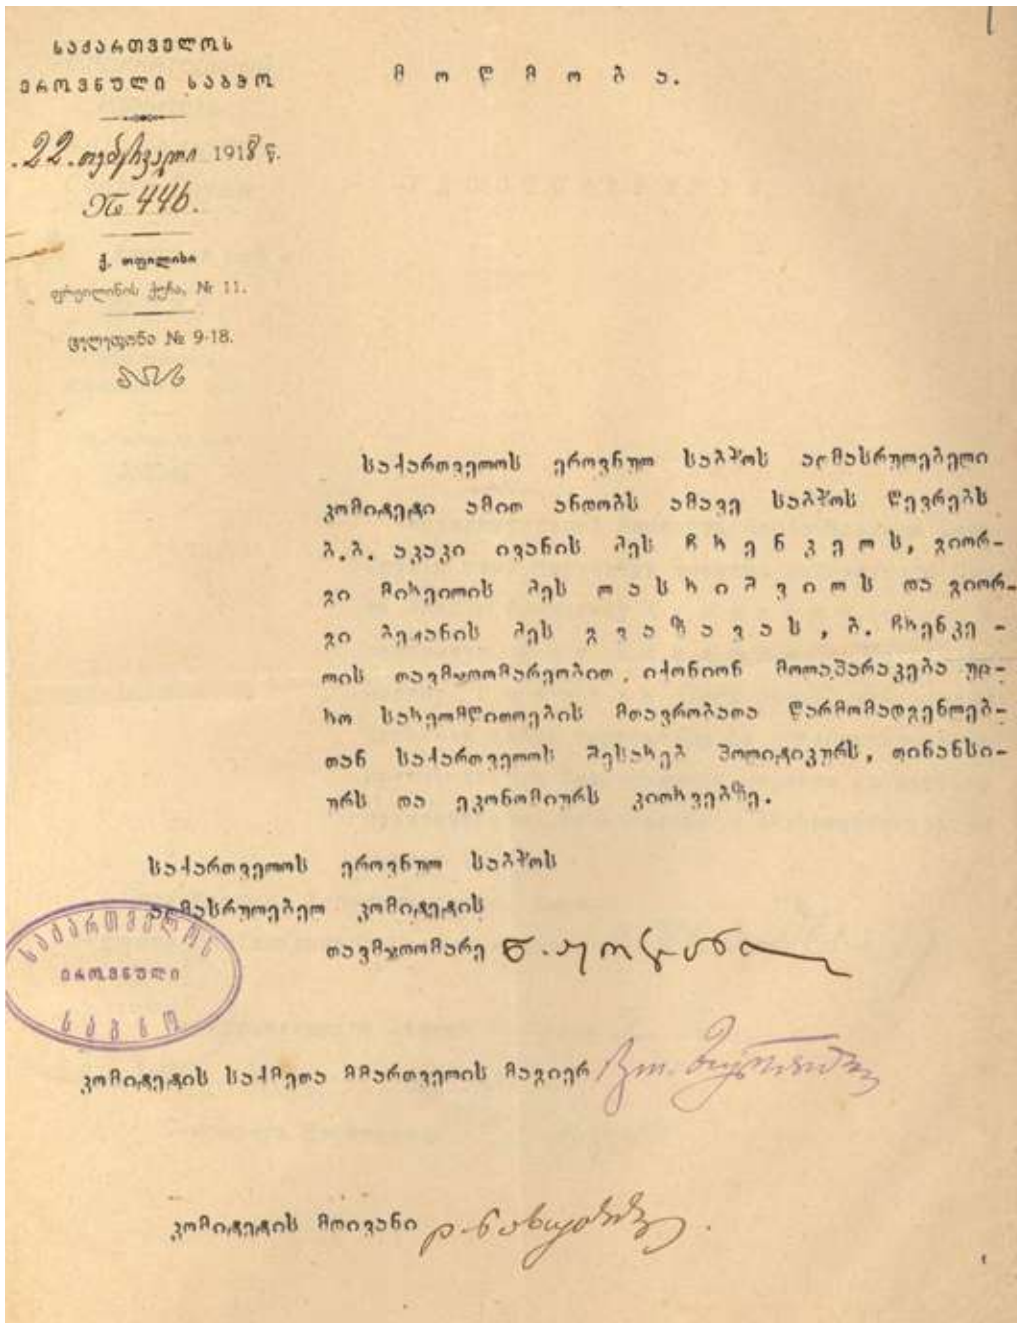 საქართველოს
ეროვნული საბჭო
მოწმობა.
22 თებერვალი 1918 წ.
№ 446.
ქ. თფილისი
ფრეილინის ქუჩა, № 11.
ტელეფონი № 9-18.
საქართველოს ეროვნულ საბჭოს აღმასრულებელი
კომიტეტი ამით ანდობს ამავე საბჭოს წევრებს
ბ.ბ. აკაკი ივანის ძეს ჩხენკელს, გიორ-
გი მიხეილის ძეს ლასხიშვილს და გიორ-
გი ბეჟანის ძეს გვაზავას, ბ. ჩხენკე-
ლის თავმჯდომარეობით, იქონიონ მოლაპარაკება უც-
ხო სახელმწიფოების მთავრობათა წარმომადგენლებ-
თან საქართველოს შესახებ პოლიტიკურს, ფინანსი-
ურს და ეკონომიურს კითხვებზე.
საქართველოს ეროვნულ საბჭოს
აღმასრულებელ კომიტეტის
თავმჯდომარე ნ. ჟორდანია
საქართველოს
ეროვნული
საბჭო
კომიტეტის საქმეთა მმართველის მაგიერ
კომიტეტის მდივანი